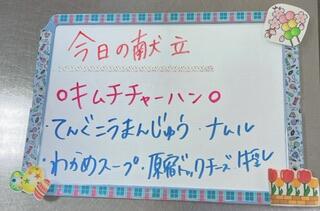 今日の献立
○キムチチャーハン○
・てんぐこうまんじゅう・ナムル
・わかめスープ・原宿ドックチーズ